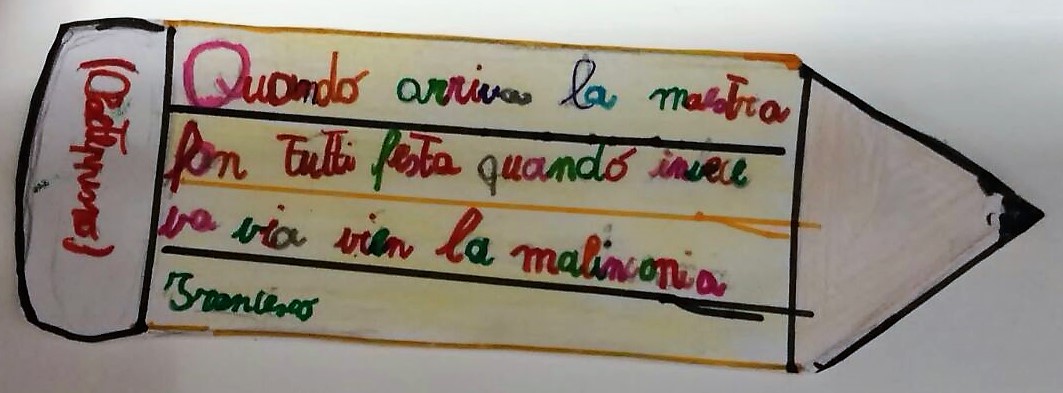 Quando arriva la maestra
fan tutti festa quando invece
va via vien la malinconia
Francesco